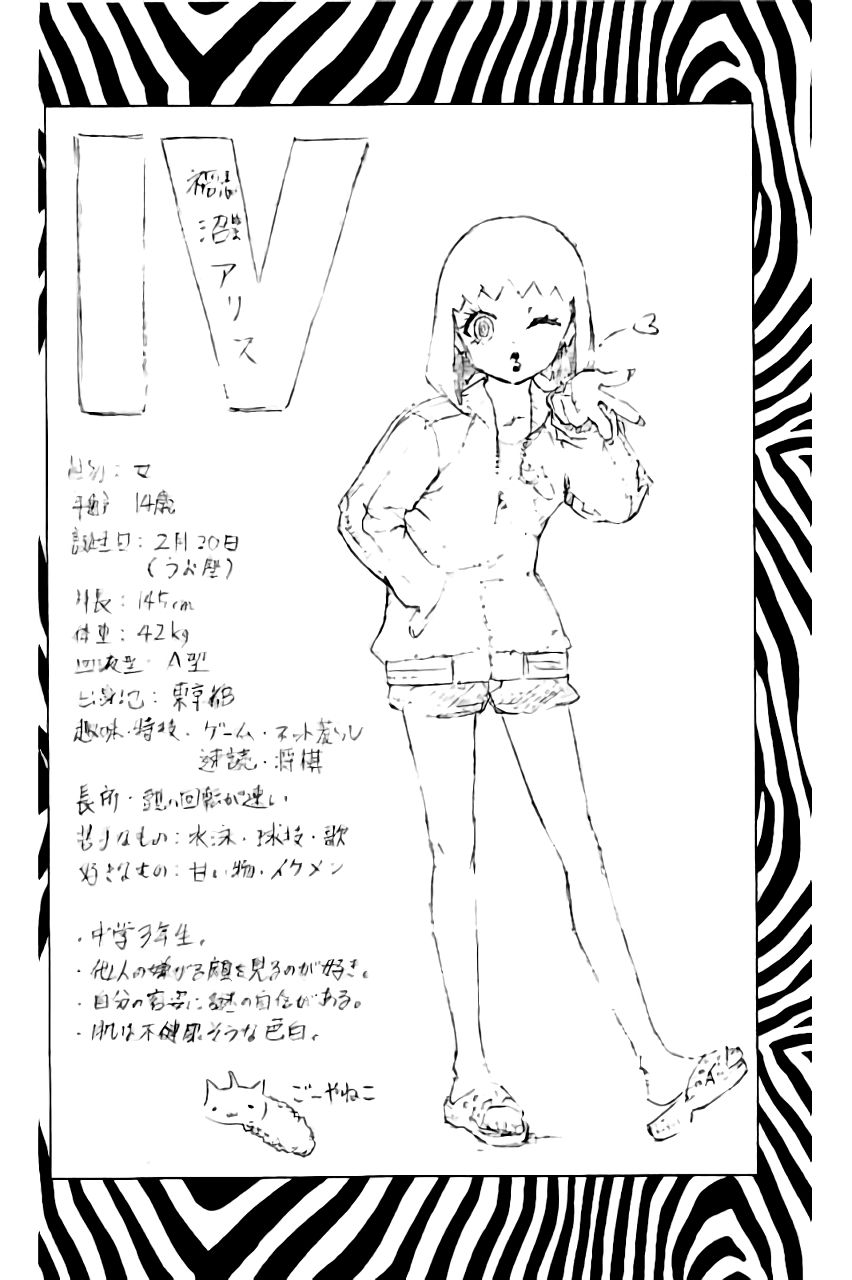 IV
稲沼アリス
性別：女
年齢 14歳
誕生日：2月20日
（うお座）
身長：145cm
体重：42kg
血液型・A型
出身地：東京都
趣味・特技・ゲーム・ネット荒らし
速読・将棋
長所・頭の回転が速い
苦手なもの：水泳・球技・歌
好きなもの：甘い物・イケメン
・中学3年生。
・他人の嫌がる顔を見るのが好き。
・自分の容姿に謎の自信がある。
・肌は不健康そうな色白。
ごーやねこ